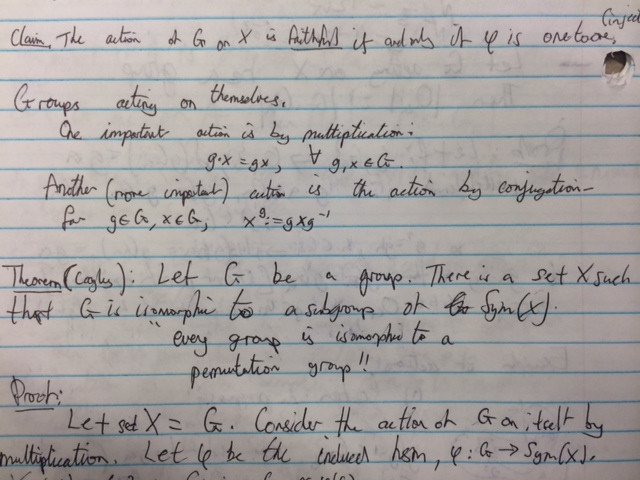 (inject
Claim. The action of G on X is faithful if and only if φ is one to one,
Groups acting on themselves.
One important action is by multiplication:
g·x = gx, ∀ g,x ∈ G.
Another (more important) action is the action by conjugation-
for g ∈ G, x ∈ G, x^g := gxg⁻¹
Theorem (Cayley): Let G be a group. There is a set X such
that G is isomorphic to a subgroup of Sym(X).
"every group is isomorphic to a
permutation group!!
Proof:
Let set X = G. Consider the action of G on itself by
multiplication. Let φ be the induced hsm, φ: G → Sym(X).